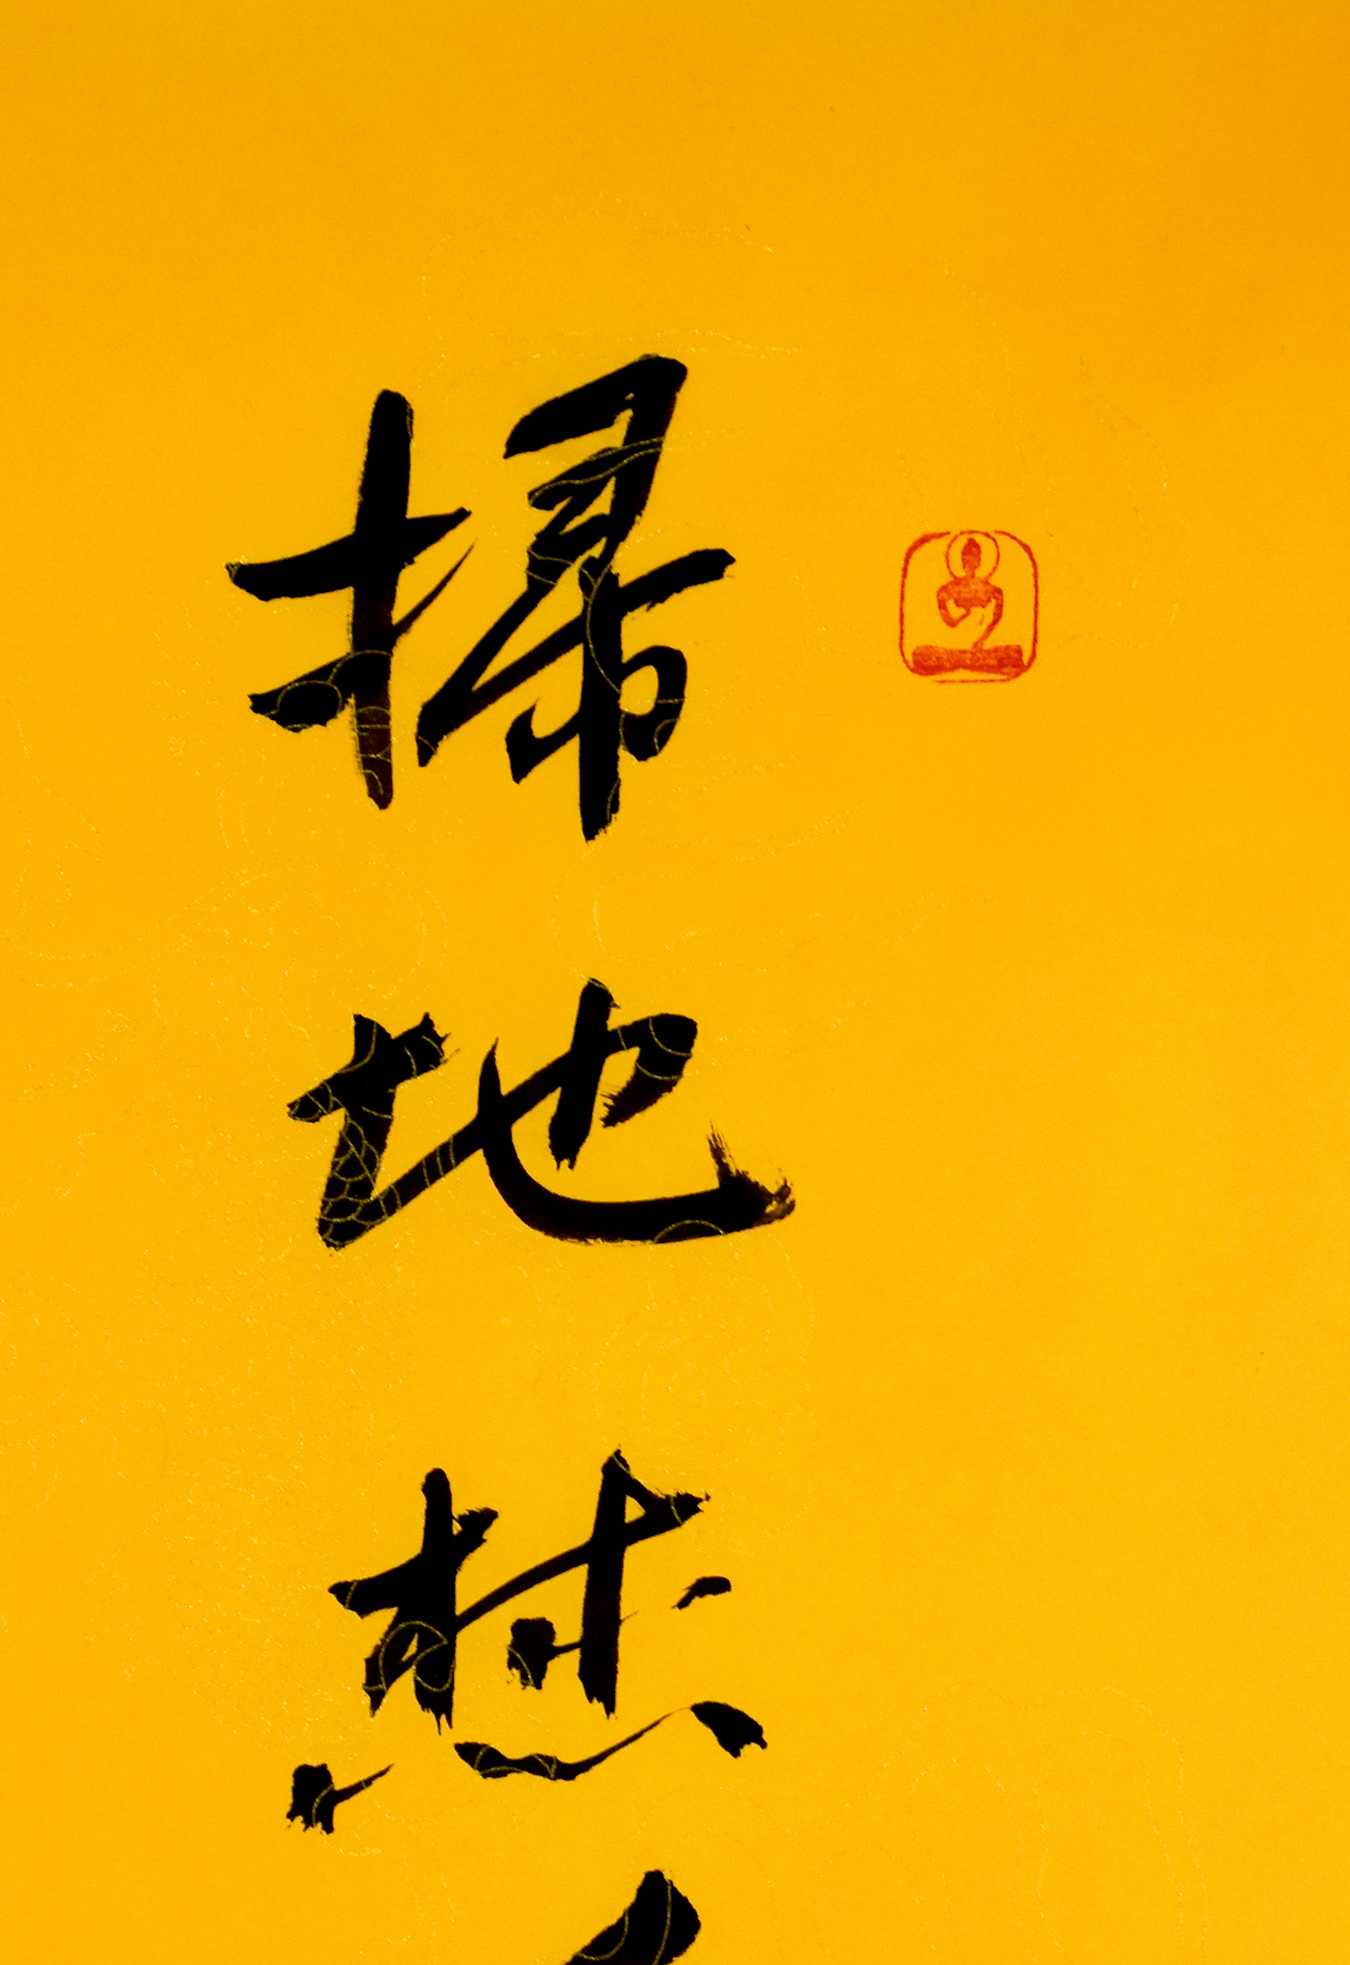 掃地焚